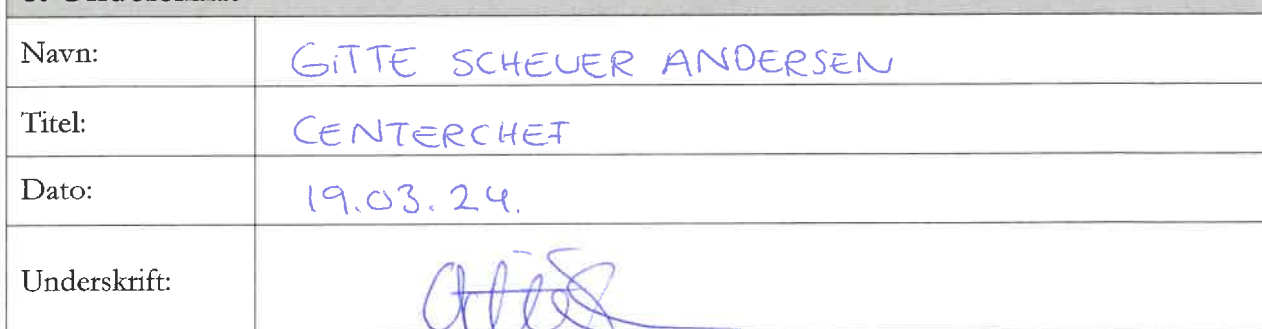 Navn: GITTE SCHEUER ANDERSEN
Titel: CENTERCHEF
Dato: 19.03.24.
Underskrift: